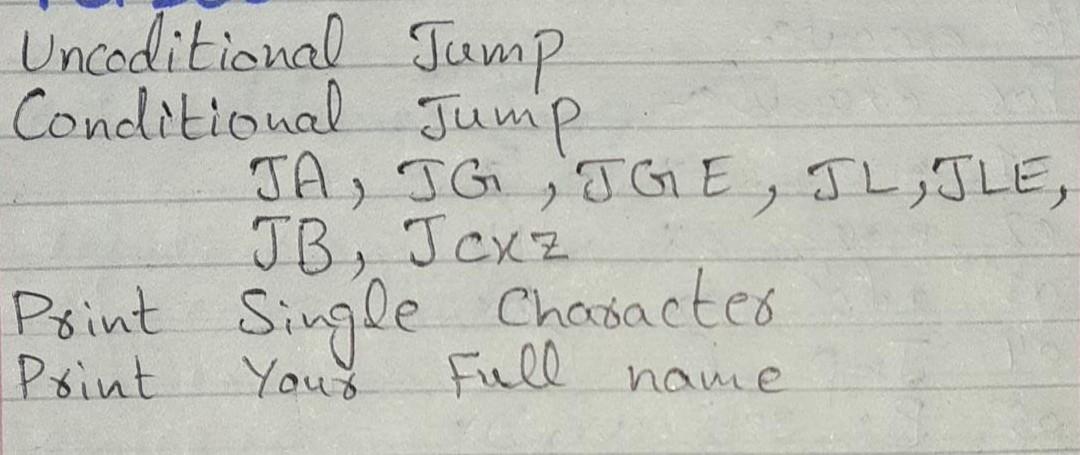 Uncoditional Jump
Conditional Jump
JA, JG, JGE, JL, JLE,
JB, Jcxz
Print Single Character
Print Your Full name